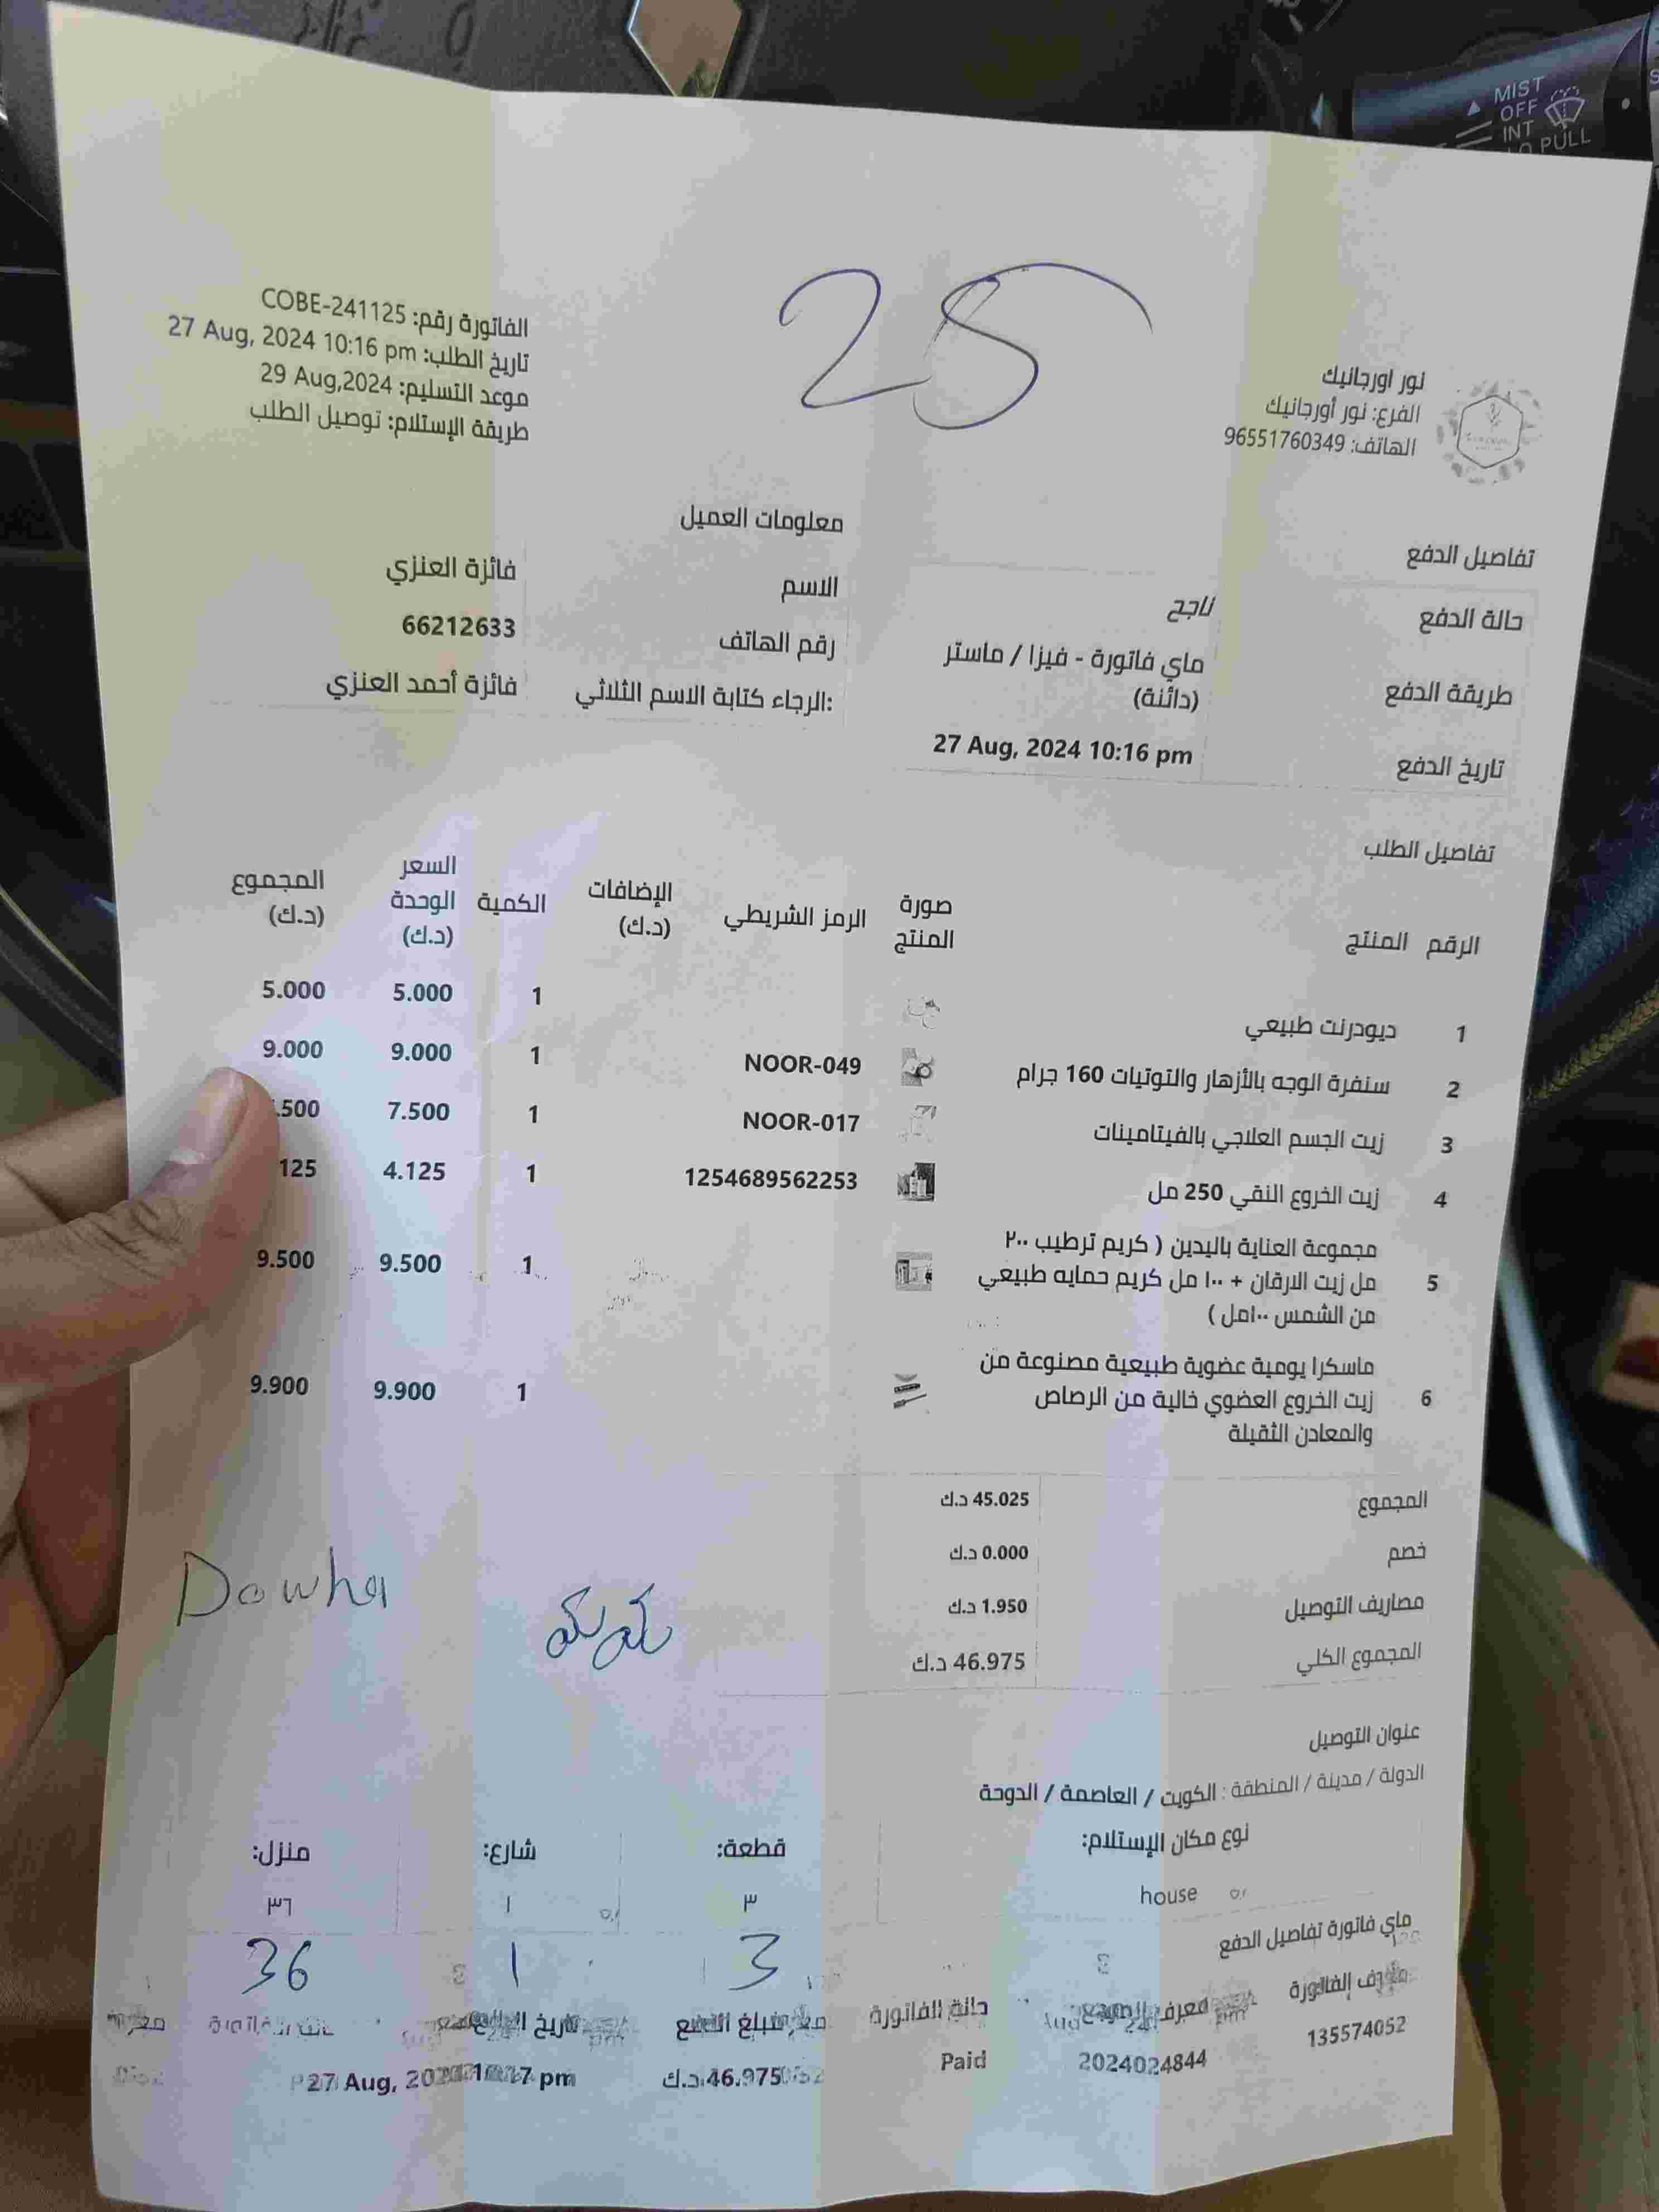 MIST
OFF
INT
LO PULL
25
نور اورجانيك
الفرع: نور أورجانيك
الهاتف: 96551760349
الفاتورة رقم: COBE-241125
تاريخ الطلب: 27 Aug, 2024 10:16 pm
موعد التسليم: 29 Aug,2024
طريقة الإستلام: توصيل الطلب
تفاصيل الدفع
حالة الدفع ناجح
طريقة الدفع ماي فاتورة - فيزا / ماستر
(دائنة)
تاريخ الدفع 27 Aug, 2024 10:16 pm
معلومات العميل
الاسم فائزة العنزي
رقم الهاتف 66212633
الرجاء كتابة الاسم الثلاثي: فائزة أحمد العنزي
تفاصيل الطلب
الرقم المنتج صورة المنتج الرمز الشريطي الإضافات (د.ك) الكمية السعر الوحدة (د.ك) المجموع (د.ك)
1 ديودرنت طبيعي 1 5.000 5.000
2 سنفرة الوجه بالأزهار والتوتيات 160 جرام NOOR-049 1 9.000 9.000
3 زيت الجسم العلاجي بالفيتامينات NOOR-017 1 7.500 .500
4 زيت الخروع النقي 250 مل 1254689562253 1 4.125 125
مجموعة العناية باليدين ( كريم ترطيب ٢٠٠
5 مل زيت الارقان + ١٠٠ مل كريم حمايه طبيعي 1 9.500 9.500
من الشمس ١٠٠مل )
ماسكرا يومية عضوية طبيعية مصنوعة من
6 زيت الخروع العضوي خالية من الرصاص 1 9.900 9.900
والمعادن الثقيلة
المجموع 45.025 د.ك
خصم 0.000 د.ك
مصاريف التوصيل 1.950 د.ك
المجموع الكلي 46.975 د.ك
Dowha
عنوان التوصيل
الدولة / مدينة / المنطقة : الكويت / العاصمة / الدوحة
نوع مكان الإستلام: قطعة: شارع: منزل:
house ٣ ١ ٣٦
3 1 36
ماي فاتورة تفاصيل الدفع
معرف الفاتورة معرف المرجع حالة الفاتورة مبلغ الدفع تاريخ
135574052 2024024844 Paid 46.975 د.ك 27 Aug, pm